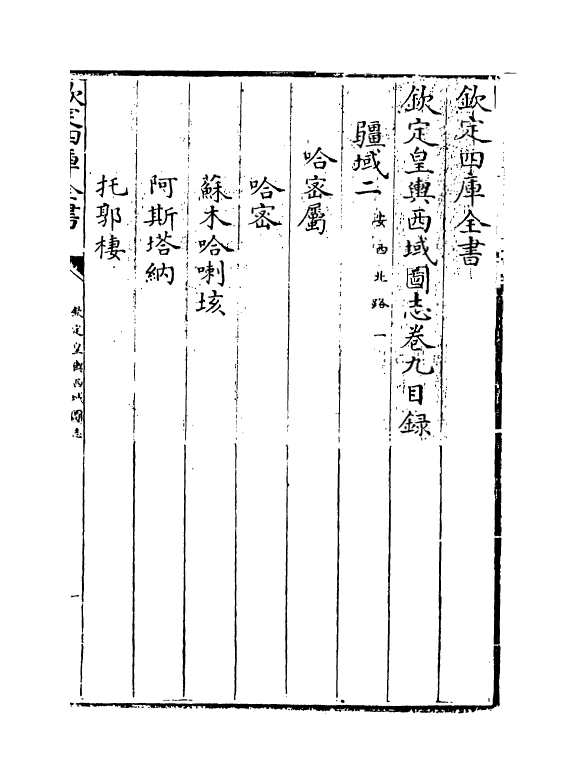 欽定四庫全書
欽定皇輿西域圖志卷九目録
疆域二 安西北路一
哈密屬
哈密
蘇木哈喇垓
阿斯塔納
托郭棲
欽定四庫全書
欽定皇輿西域圖志
一